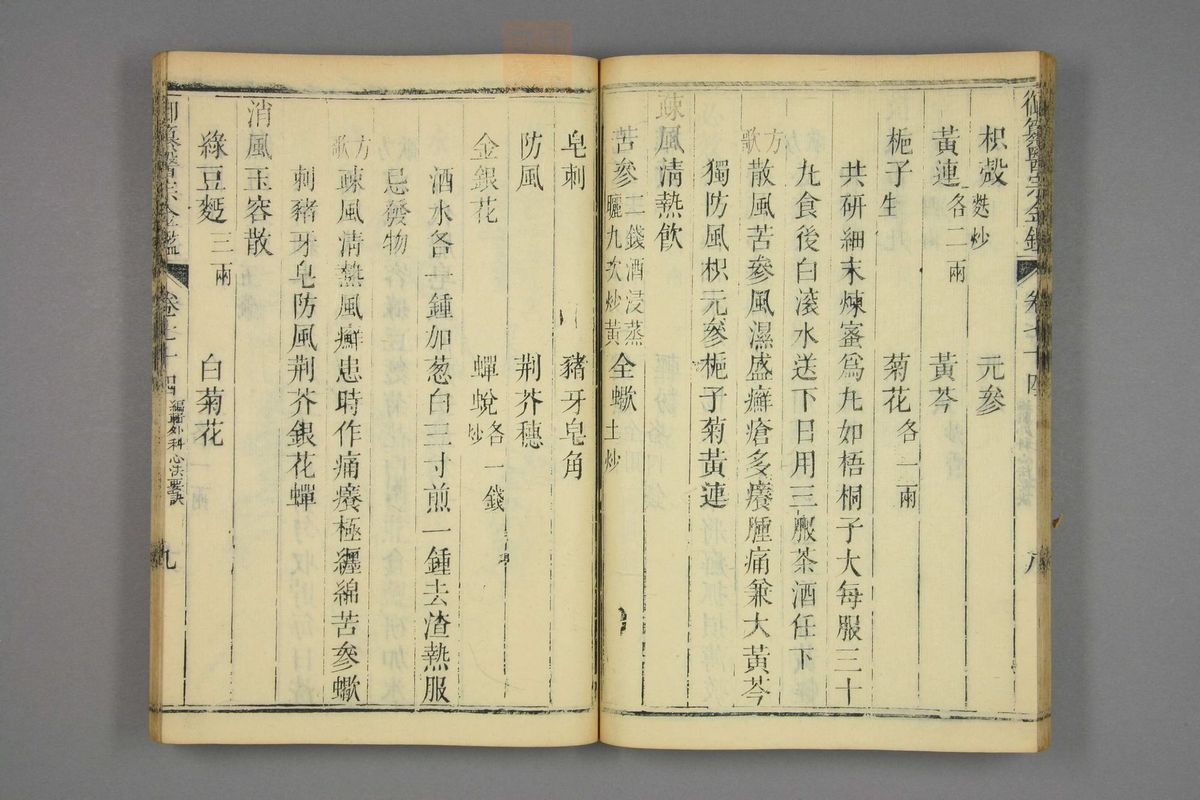 御纂醫宗金鑑 卷七十四 八
枳殼 麩炒 元參
黃連 各二兩 黃芩
梔子 生 菊花 各一兩
共研細末煉蜜爲丸如梧桐子大每服三十
丸食後白滾水送下日用三服茶酒任下
方歌 散風苦參風濕盛癬瘡多癢腫痛兼大黃芩
獨防風枳元參梔子菊黃連
疎風清熱飲
苦參 二錢酒浸蒸曬九次炒黃 全蠍 土炒
皂刺 豬牙皂角
防風 荆芥穗
金銀花 蟬蛻 炒 各一錢
酒水各一鍾加葱白三寸煎一鍾去渣熱服
忌發物
方歌 疎風清熱風癬患時作痛癢極纏綿苦參蠍
刺豬牙皂防風荆芥銀花蟬
消風玉容散
綠豆麪 三兩 白菊花
御纂醫宗金鑑 卷七十四 編輯外科心法要訣 九